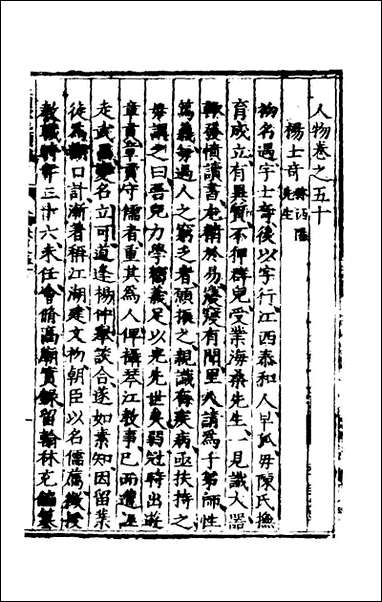 人物卷之五十
楊士奇
先生
楊名遇字士奇後以字行江西泰和人早孤毋陳氏撫
育成立有異質不狎群兒受業海桑先生一見識大器
發憤讀書尤精於易寖寖有聞里人請為子弟師性
篤義每過人之窮乏者傾振之親識每疾病亟扶持之
毋謂之曰吾兒力學嚮義足以光先世矣弱冠時出遊
章貢章貢守儒者重其為人俾攝琴江教事已而遭
走武變名立可道逢楊仲舉談合遂如素知因留業
徒為餬口計漸著稱江湖建文初朝臣以名儒薦授
教職時年三十六未任會脩高廟實錄留翰林充編纂